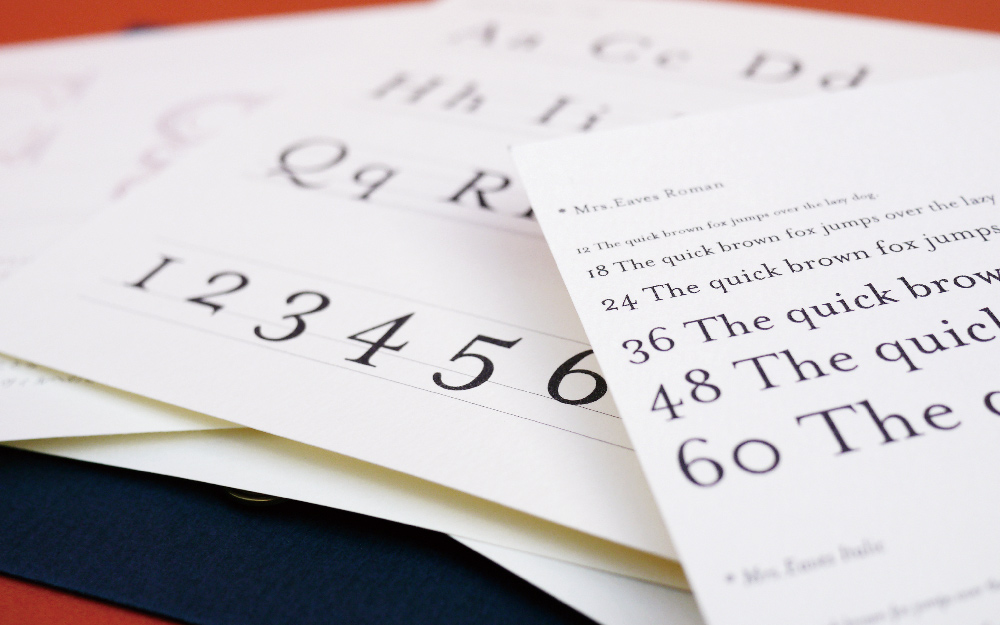 Aa Cc Dd
Hh Ii
Qq R
1 2 3 4 5 6
• Mrs.Eaves Roman
12 The quick brown fox jumps over the lazy dog.
18 The quick brown fox jumps over the lazy
24 The quick brown fox jumps
36 The quick brow
48 The quic
60 The
• Mrs.Eaves Italic